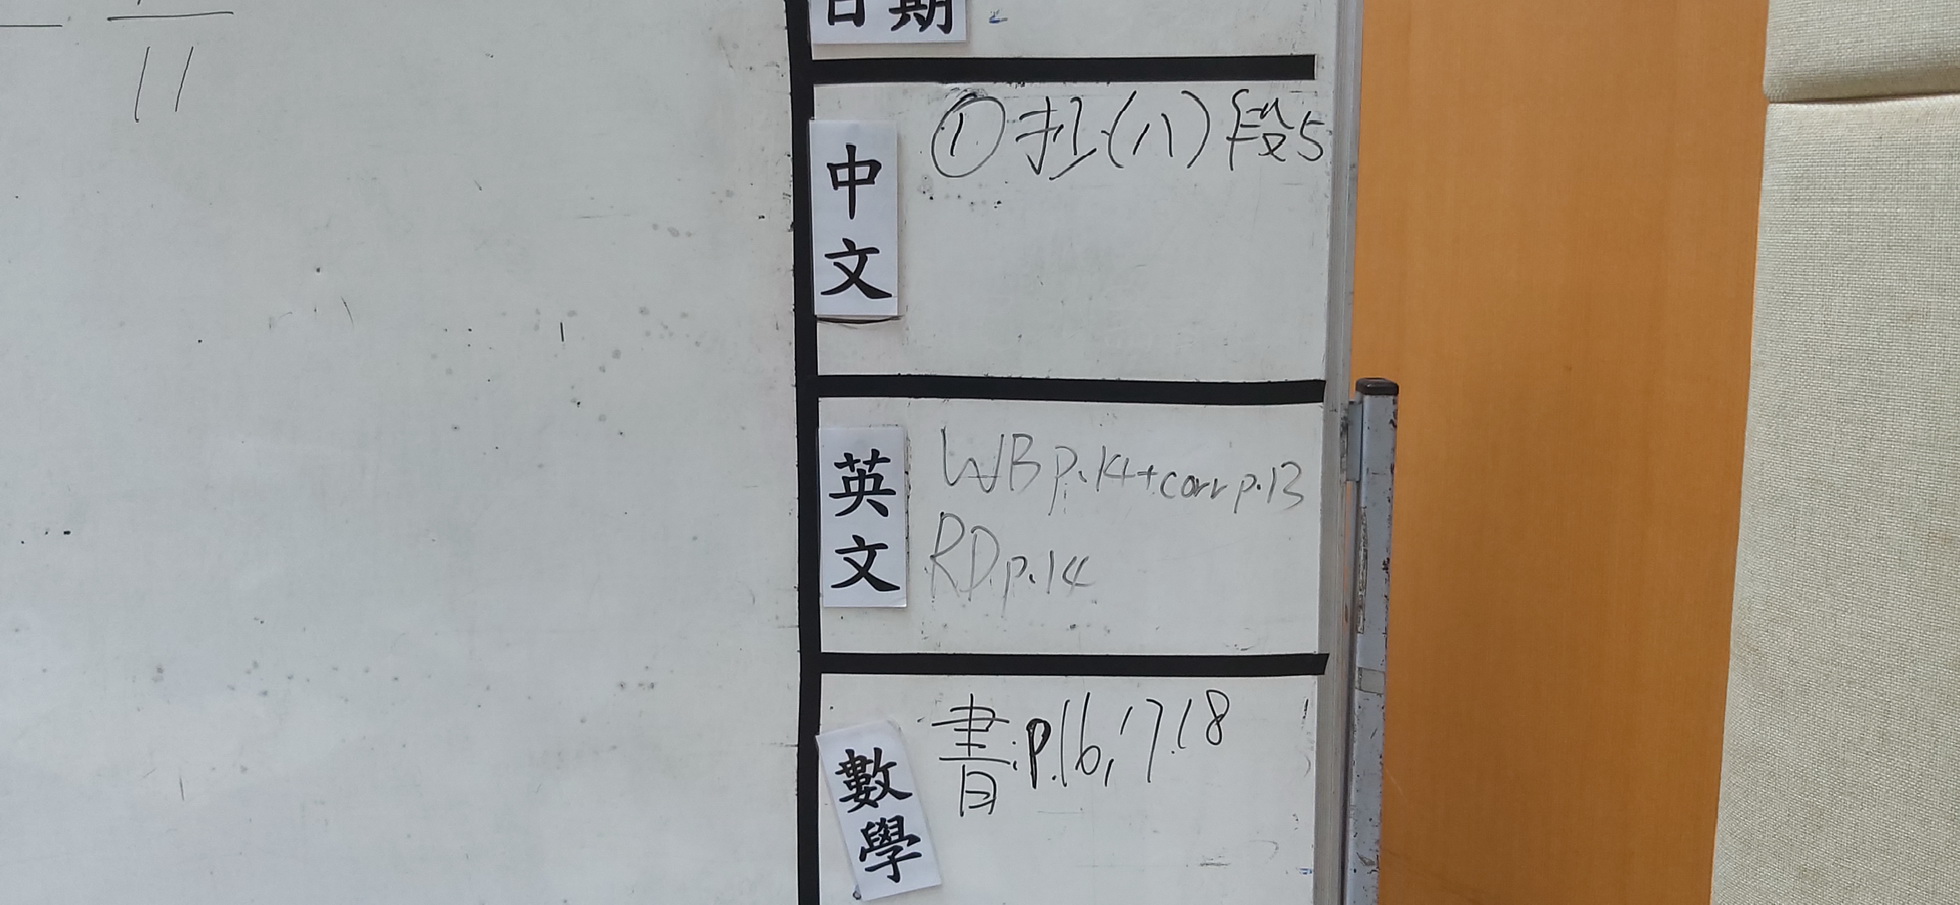 11
日期
中文
① 抄(八)段5
英文
WB p.14+corr p.13
RD p.14
數學
書:p.16,17.18